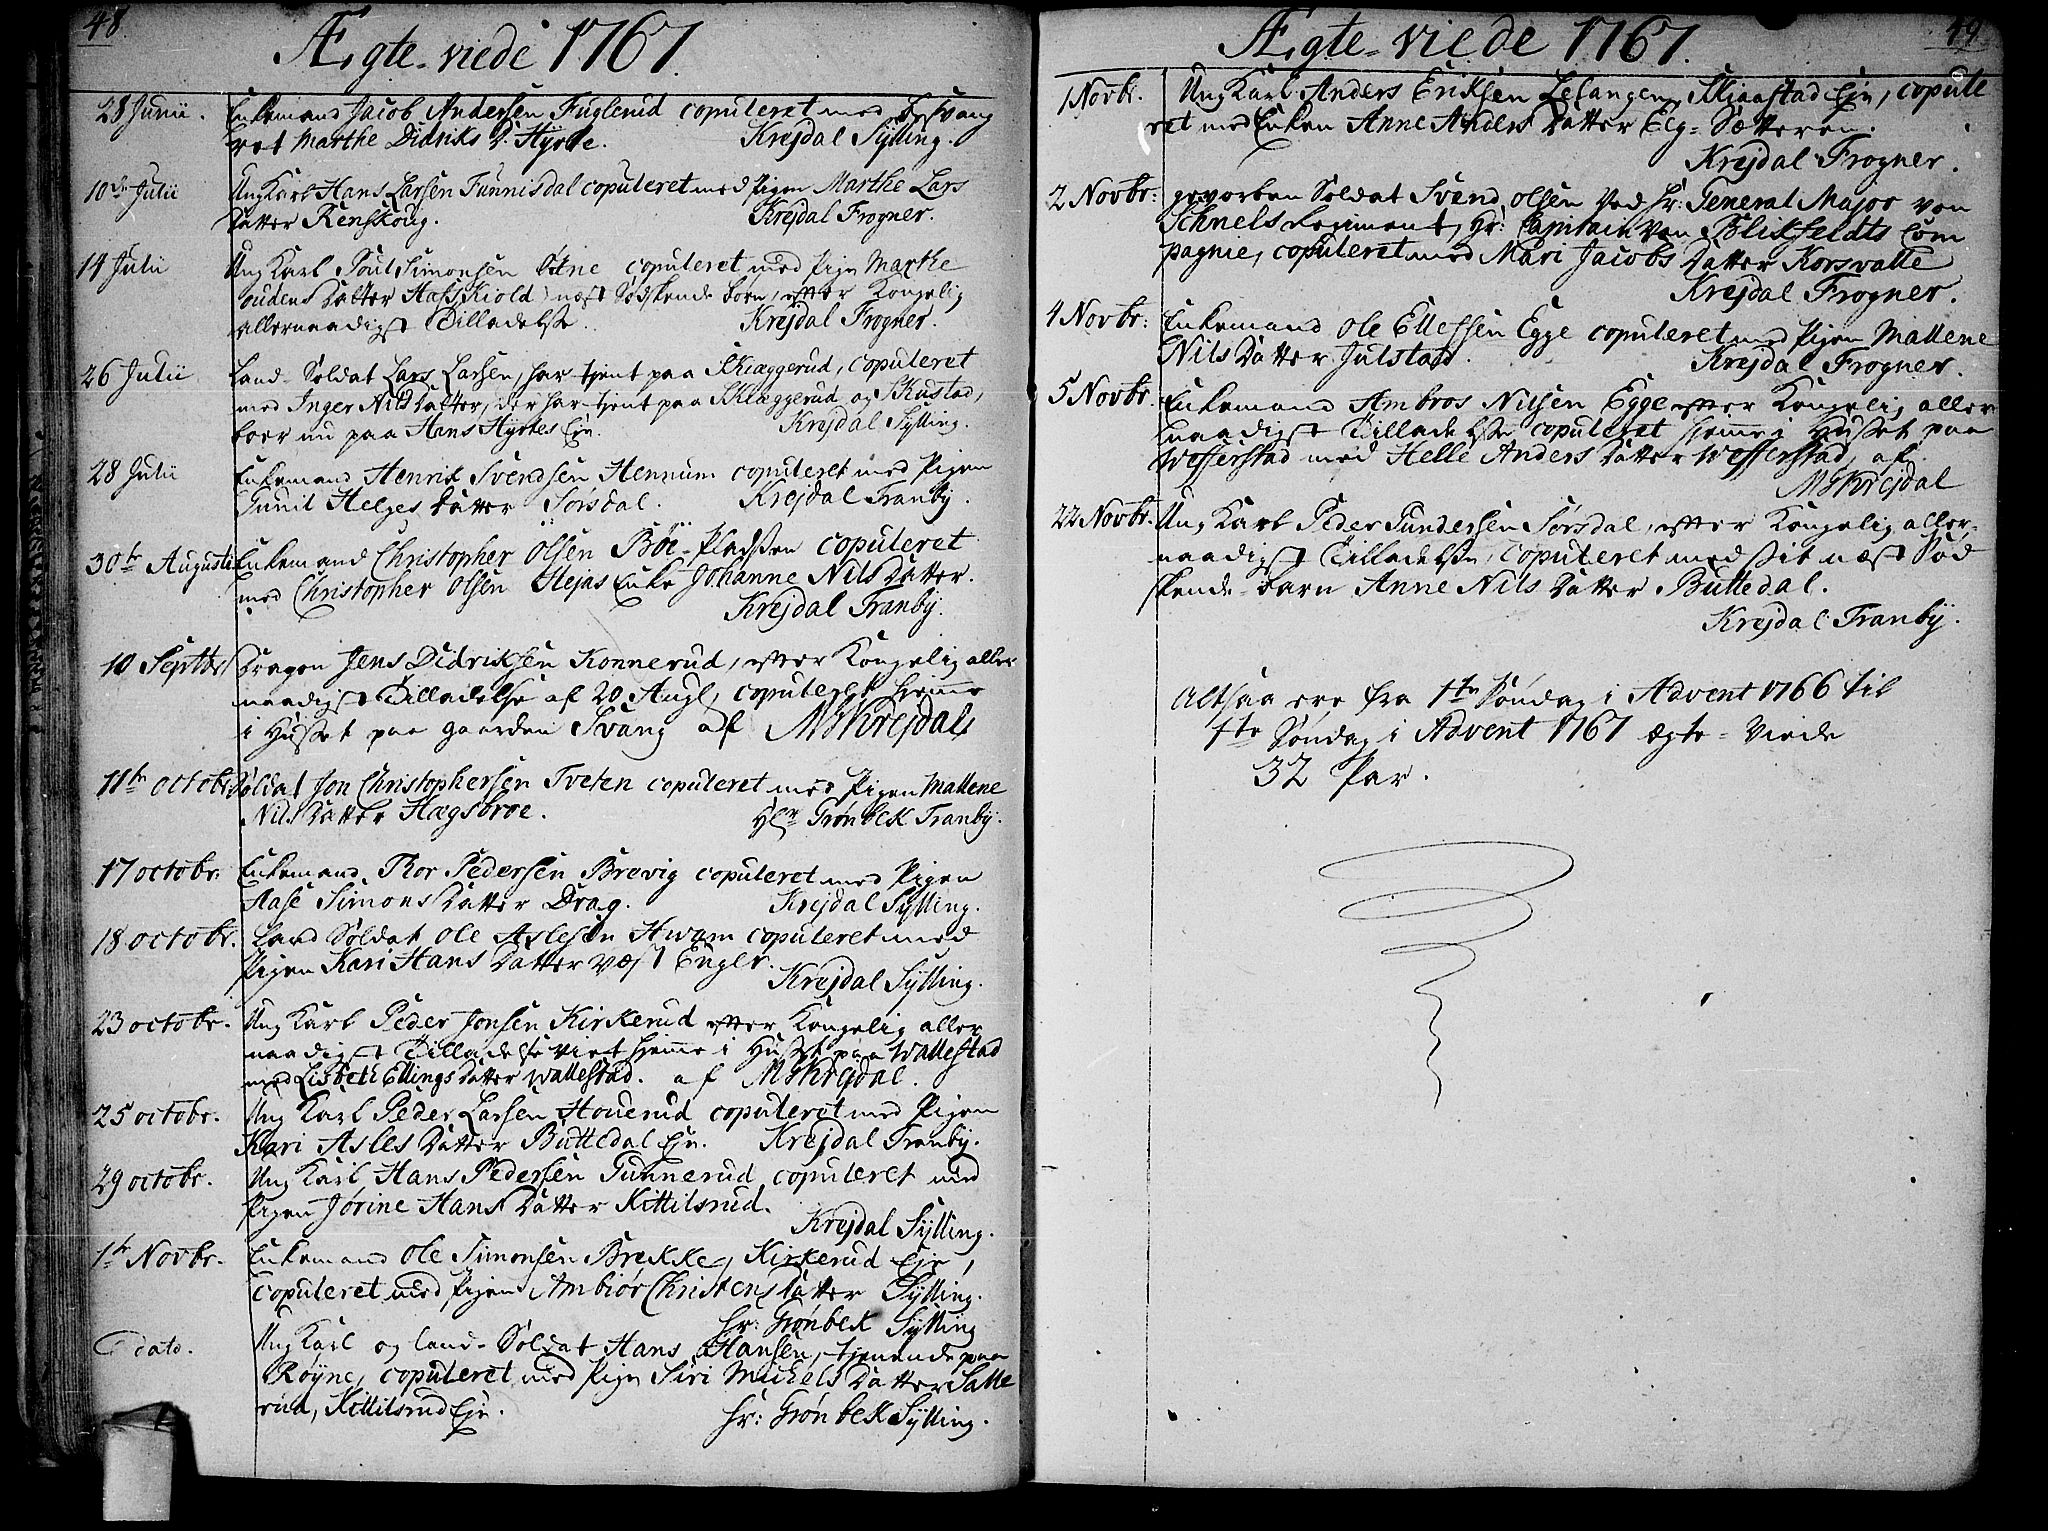 48
Ægte-viede 1767.
28 Junii. Enkemand Jacob Andersen Fuglerud copuleret med besvang
ret Marthe Didriks D. Hyrde. Krejdal Sylling.
10de Julii Ung Karl Hans Larsen Tunnisdal copuleret med Pigen Marthe Lars
Datter Renskoug. Krejdal Frogner.
14 Julii Ung Karl Poul Simonsen copuleret med Pigen Marthe
oudens Datter Hasskiold næst Sødskende born, efter Kongelig
allernaadigst Tilladelse. Krejdal Frogner.
26 Julii Land-Soldat Lars Larsen, har tient paa Skiæggerud, copuleret
med Inger Nils Datter, der har tient paa Sklæggerud og Skustad,
boer nu paa Hans Hyrdes Eje. Krejdal Sylling.
28 Julii Enkemand Henrik Svendsen Hennum copuleret med Pigen
Gunil Helges Datter Sørsdal. Krejdal Tranby.
30te Augusti Enkemand Christopher Olsen Böe-Pladsen copuleret
med Christopher Olsen Hejas Enke Johanne Nils Datter.
Krejdal Tranby.
10 Septbr Dragon Jens Didriksen Konnerud, efter Kongelig aller
naadigst Tilladelse af 20 Augl, copuleret hiemme
i Huset paa gaarden Svang af MS Krejdal
11te octobr Soldat Jon Christophersen Tveten copuleret med Pigen Mallene
Nils Datter Hægsbroe. Hr Grønbek Tranby.
17 octobr. Enkemand Thor Pedersen Brevig copuleret med Pigen
Aase Simons Datter Drag. Krejdal Sylling.
18 octobr. Land Soldat Ole Aslesen Hwam copuleret med
Pigen Kari Hans Datter Væst Enger. Krejdal Sylling.
23 octobr. Ung Karl Peder Jonsen Kirkerud efter Kongelig aller
naadigst Tilladelse viet hiemme i Huset paa Wallestad
med Lisbeth Ellings Datter Wallestad. af MS Krejdal.
25 octobr. Ung Karl Peder Larsen Houerud copuleret med Pigen
Kari Asles Datter Buttedal Eje. Krejdal Tranby.
29 octobr. Ung Karl Hans Pedersen Gunnerud copuleret med
Pigen Jørine Hans Datter Kittilsrud.
Krejdal Sylling.
1te Novbr. Enkemand Ole Simonsen Brekke, Kirkerud Eje,
copuleret med Pigen Ambiør Christens Datter Sylling.
Hr: Grønbek Sylling
dato. Ung Karl og land-Soldat Hans Hansen, tienende paa
Røyne, copuleret med Pigen Siri Michels Datter Salle
rud, Kittilsrud Eje. Hr: Grønbek Sylling.
49
Ægte-viede 1767.
1 Novbr. Ung Karl Anders Eriksen Lesangen, Skiaastad Eje, copule
ret med Enken Anne Anders Datter Eeg-Sætteren.
Krejdal Frogner.
2 Novbr: gevorben Soldat Svend Olsen ved Hr: General Major von
Schnels Regiment, Hr: Capitain von Blixfeldts Com
pagnie, copuleret med Mari Jacobs Datter Korsvalle
Krejdal Frogner.
4 Novbr: Enkemand Ole Ellefsen Egge copuleret med Pigen Mallene
Nils Datter Julstad. Krejdal Frogner.
5 Novbr Enkemand Ambros Nilsen Egge efter Kongelig aller
naadigst Tilladelse copuleret hjemme i Huset paa
Wefferstad med Helle Anders Datter Wefferstad, af
MS Krejdal
22 Novbr. Ung Karl Peder Gundersen Sørsdal, efter Kongelig aller-
naadigst Tilladelse, copuleret med sit næst Sød
skende-barn Anne Nils Datter Buttedal.
Krejdal Tranby.
Altsaa ere fra 1te Søndag i Advent 1766 til
1te Søndag i Advent 1767 ægte-viede
32 Par.